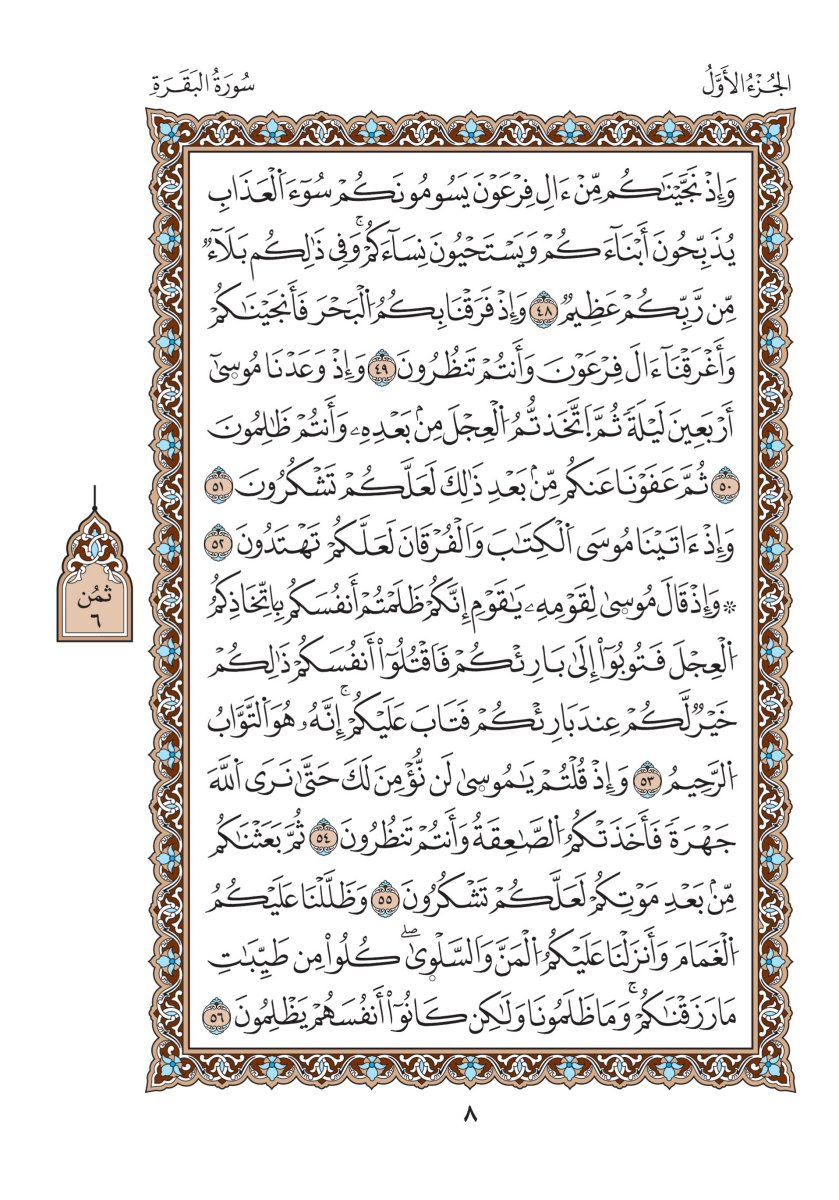 الجُزْءُ الأَوَّلُ
سُورَةُ البَقَرَةِ
وَإِذْ نَجَّيْنَٰكُم مِّنْ ءَالِ فِرْعَوْنَ يَسُومُونَكُمْ سُوٓءَ اَلْعَذَابِ
يُذَبِّحُونَ أَبْنَآءَكُمْ وَيَسْتَحْيُونَ نِسَآءَكُمْۚ وَفِي ذَٰلِكُم بَلَآءٌ
مِّن رَّبِّكُمْ عَظِيمٌ ٤٨ وَإِذْ فَرَقْنَا بِكُمُ اُلْبَحْرَ فَأَنجَيْنَٰكُمْ
وَأَغْرَقْنَآ ءَالَ فِرْعَوْنَ وَأَنتُمْ تَنظُرُونَ ٤٩ وَإِذْ وَعَدْنَا مُوسۭىٰٓ
أَرْبَعِينَ لَيْلَةً ثُمَّ اَتَّخَذتُّمُ اُلْعِجْلَ مِنۢ بَعْدِهِۦ وَأَنتُمْ ظَٰلِمُونَ
٥٠ ثُمَّ عَفَوْنَا عَنكُم مِّنۢ بَعْدِ ذَٰلِكَ لَعَلَّكُمْ تَشْكُرُونَ ٥١
وَإِذْ ءَاتَيْنَا مُوسَى اَلْكِتَٰبَ وَالْفُرْقَانَ لَعَلَّكُمْ تَهْتَدُونَ ٥٢
ثمُن
٦
۞ وَإِذْ قَالَ مُوسىٰ لِقَوْمِهِۦ يَٰقَوْمِ إِنَّكُمْ ظَلَمْتُمْ أَنفُسَكُم بِاتِّخَاذِكُمُ
اُلْعِجْلَ فَتُوبُوٓاْ إِلَىٰ بَارِئْكُمْ فَاقْتُلُوٓاْ أَنفُسَكُمْ ذَٰلِكُمْ
خَيْرٌ لَّكُمْ عِندَ بَارِئْكُمْ فَتَابَ عَلَيْكُمْۚ إِنَّهُۥ هُوَ اَلتَّوَّابُ
اُلرَّحِيمُ ٥٣ وَإِذْ قُلْتُمْ يَٰمُوسىٰ لَن نُّؤْمِنَ لَكَ حَتَّىٰ نَرَى اَللَّهَ
جَهْرَةً فَأَخَذَتْكُمُ اُلصَّٰعِقَةُ وَأَنتُمْ تَنظُرُونَ ٥٤ ثُمَّ بَعَثْنَٰكُم
مِّنۢ بَعْدِ مَوْتِكُمْ لَعَلَّكُمْ تَشْكُرُونَ ٥٥ وَظَلَّلْنَا عَلَيْكُمُ
اُلْغَمَامَ وَأَنزَلْنَا عَلَيْكُمُ اُلْمَنَّ وَالسَّلْوىٰۖ كُلُواْ مِن طَيِّبَٰتِ
مَا رَزَقْنَٰكُمْۚ وَمَا ظَلَمُونَا وَلَٰكِن كَانُوٓاْ أَنفُسَهُمْ يَظْلِمُونَ ٥٦
٨